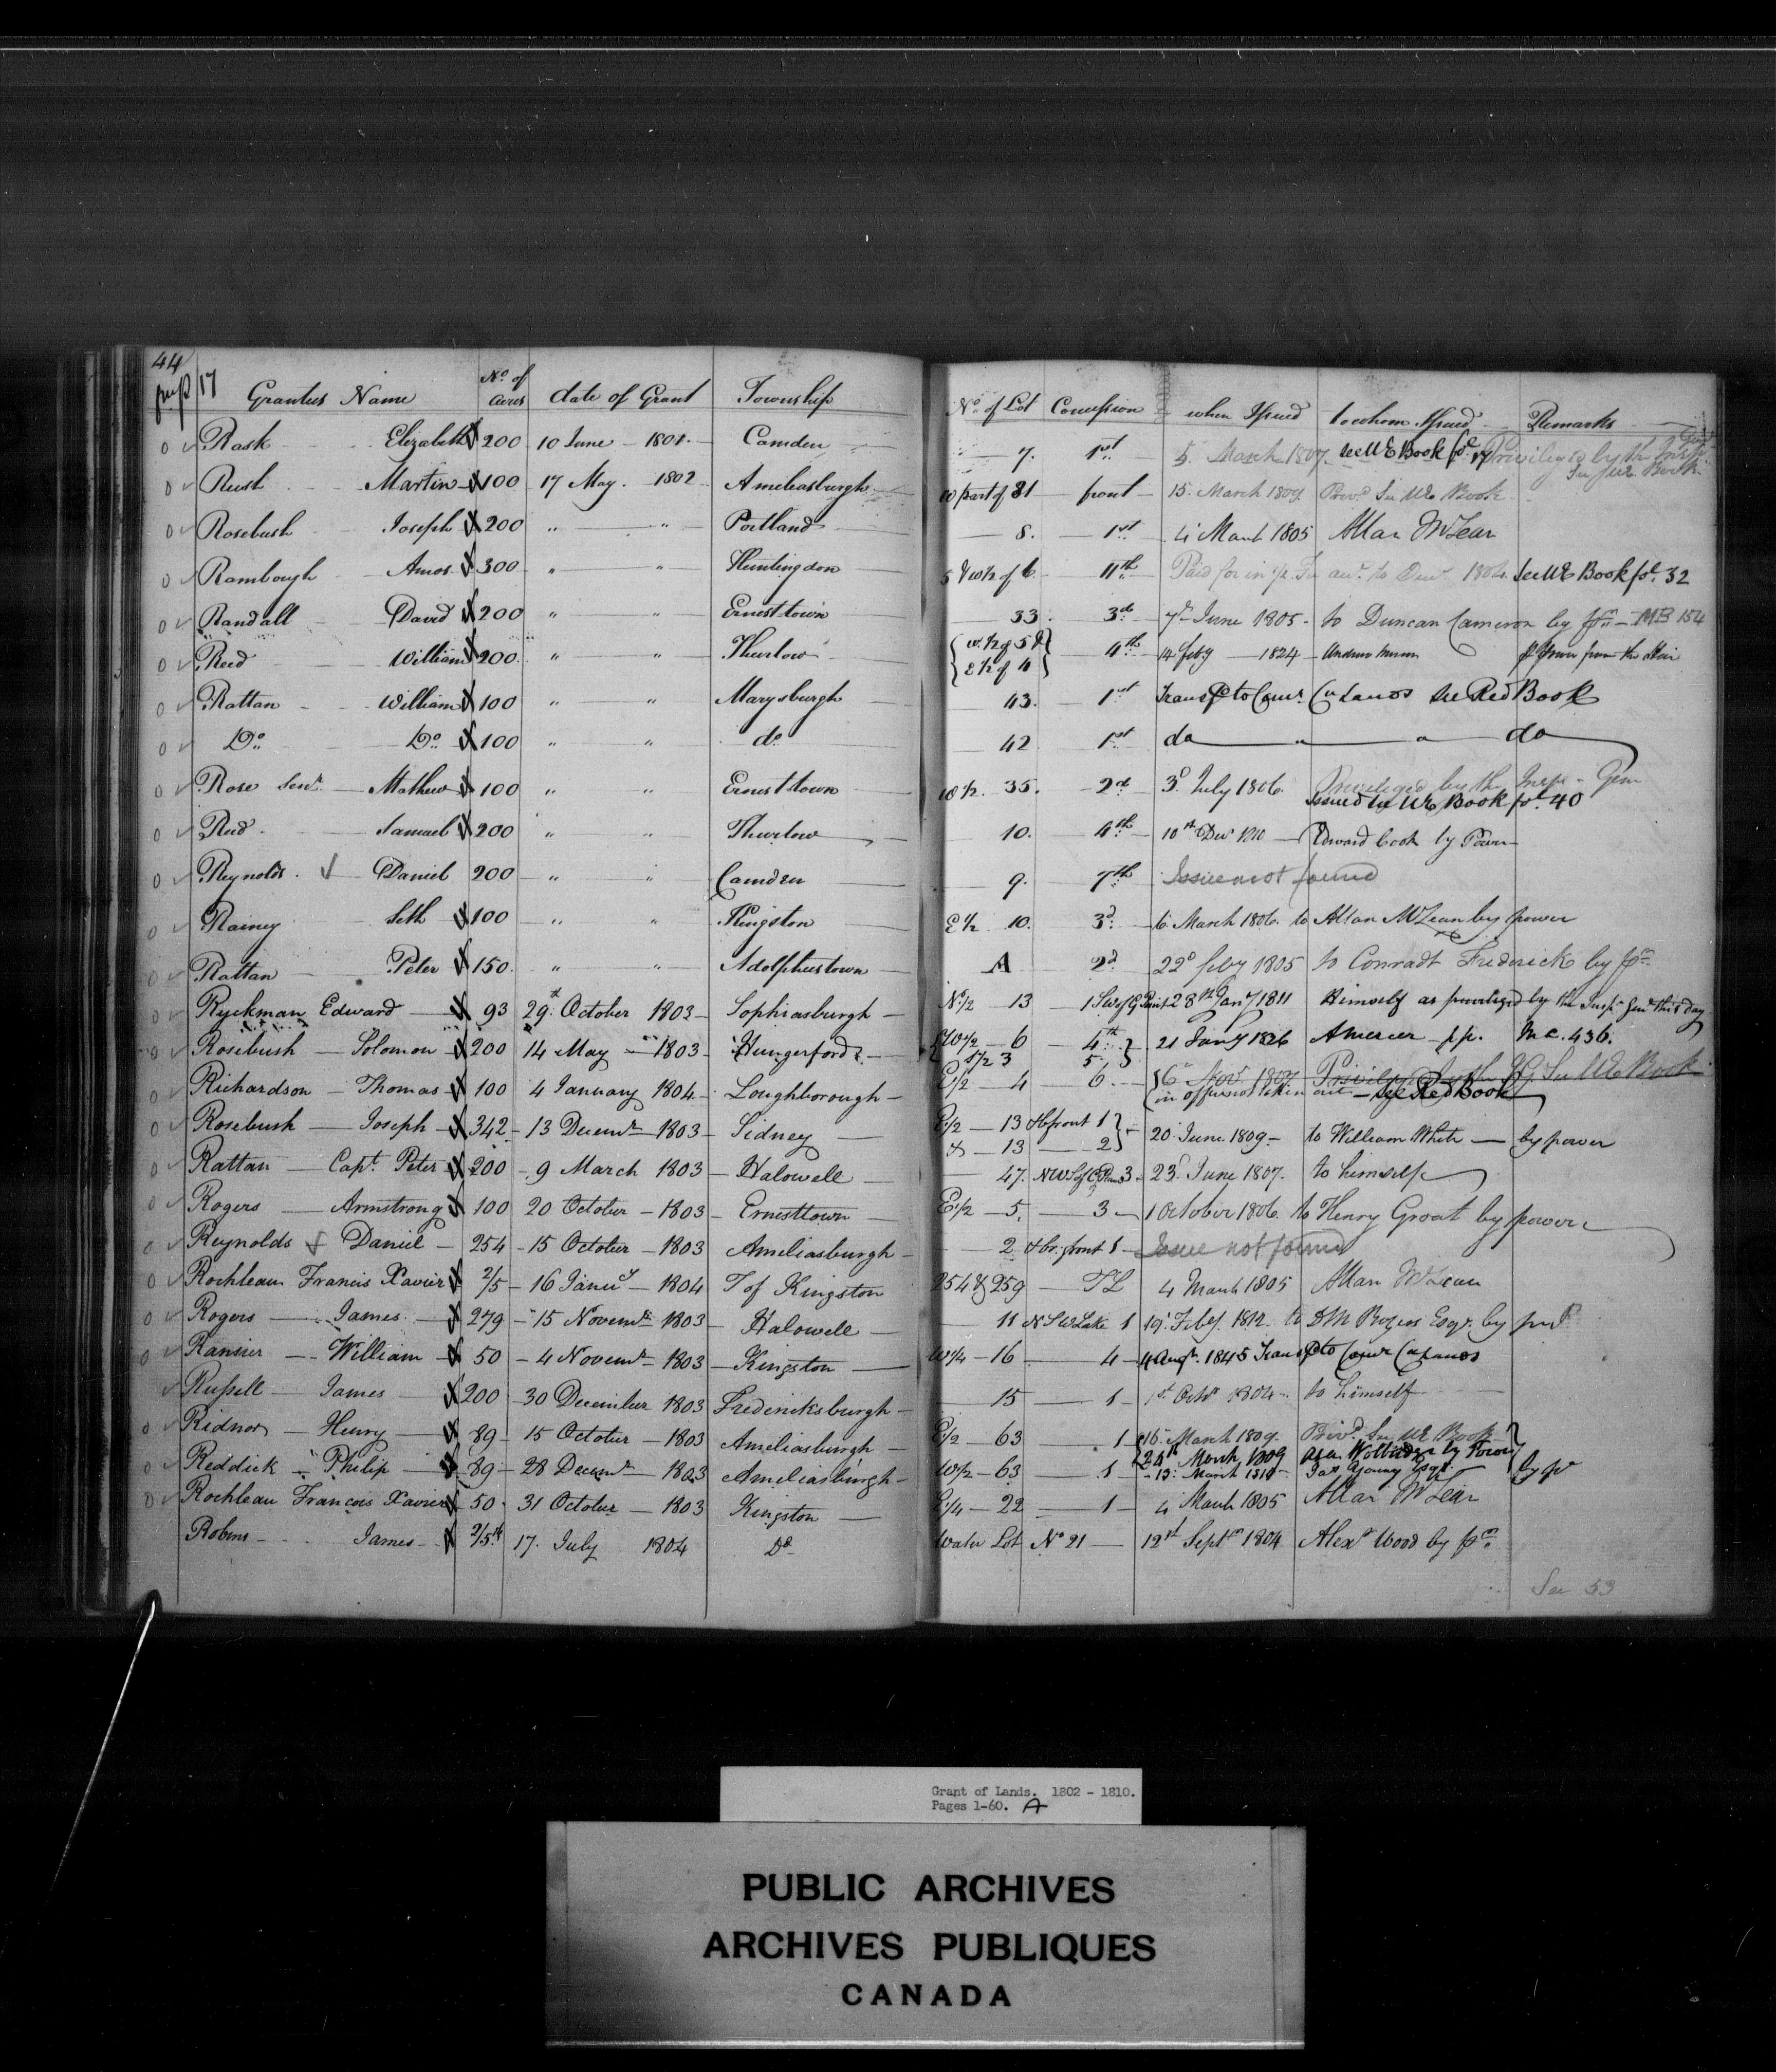 44
17 Grantees Name No. of Acres date of Grant Township No. of Lot Concession when Issued to whom Issued Remarks
Rask Elizabeth 200 10 June 1801 Camden 7. 1st 5. March 1807. see UE Book fo. 17 Privileged by the
See UE Book
Rush Martin 100 17 May. 1802 Ameliasburgh W part of 81 front 15. March 1809. Priv'd See UE Book
Rosebush Joseph 200 " " Portland 8. 1st 4 March 1805 Allan McLean
Rambough Amos 300 " " Huntingdon 5 & W½ of 6 11th Paid for in 1804. See UE Book fo. 32
Randall David 200 " " Ernesttown 33. 3d 7th June 1805 to Duncan Cameron by pr. MB 154
Reed William 200 " " Thurlow { W. ½ of 5 & E ½ of 4 } 4th 14 feby 1824 power from the Heir
Rattan William 100 " " Marysburgh 43. 1st Transf'd to Comr. Ca Lands See Red Book
Do. Do. 100 " " do 42 1st do " " do
Rose Senr. Mathew 100 " " Ernesttown W ½. 35. 2d 3d July 1806. Privileged by the Insp. Gen
Issued See UE Book fo. 40
Reed Samuel 200 " " Thurlow 10. 4th 10th Decr 1810 Edward Cook by Power
Reynolds Daniel 200 " " Camden 9. 7th Issue not found
Rainey Seth 100 " " Kingston E ½ 10. 3d. 6 March 1806. to Allan McLean by power
Rattan Peter 150. " " Adolphustown A 2d 22d feby 1805 to Conradt Frederick by pr.
Ryckman Edward 93 29th October 1803 Sophiasburgh N½ 13 1 SW of G Point 28th Jany 1811 Himself as privileged by the Insp. Genl this day
Rosebush Solomon 200 14 May 1803 Hungerford { W½ 6 4th } 21 Jany 1826 A mercer pp. M C. 436.
S½ 3 5 }
Richardson Thomas 100 4 January 1804 Loughborough E½ 4 6. 6th Novr 1809 See UE Book
(in office not taken out see Red Book
Rosebush Joseph 342 13 Decemr 1803 Sidney E½ 13 & b front 1 } 20 June 1809 to William White by power
& 13 2 }
Rattan Capt. Peter 200 9 March 1803 Halowell 47. 3 23d June 1807. to himself
Rogers Armstrong 100 20 October 1803 Ernesttown E½ 5. 3 1 October 1806. to Henry Groat by power
Reynolds Daniel 254 15 October 1803 Ameliasburgh 2 & br. front 1 Issue not found
Rochleau Francis Xavier 2/5 16 Janu'y 1804 T of Kingston 254 & 259 TL 4 March 1805 Allan McLean
Rogers James 279 15 Novemr 1803 Halowell 11 N S W Lake 1 19 Feby. 1812 to D M Rogers Esqr. by
Ransier William 50 4 Novemr 1803 Kingston W¼ 16 4 4 Augt. 1845 Transf'd to Comr Ca Lands
Russell James 200 30 December 1803 Fredericksburgh 15 1 1st Octr 1804 to himself
Ridnor Henry 89 15 October 1803 Ameliasburgh E½ 63 1 16 March 1809. Priv'd. See UE Book
Reddick Philip 89 28 Decemr 1803 Ameliasburgh W½ 63 1 { 24th March 1809 by Power
13. March 1810 Jas Young Esqr. by pr
Rochleau Francois Xavier 50 31 October 1803 Kingston E¼ 22 1 4 March 1805 Allan McLean
Robins James 2/5th 17. July 1804 Do Water Lot No 21 12th Septr 1804 Alexr Wood by pr.
See 53
Grant of Lands. 1802 - 1810.
Pages 1-60. A
PUBLIC ARCHIVES
ARCHIVES PUBLIQUES
CANADA